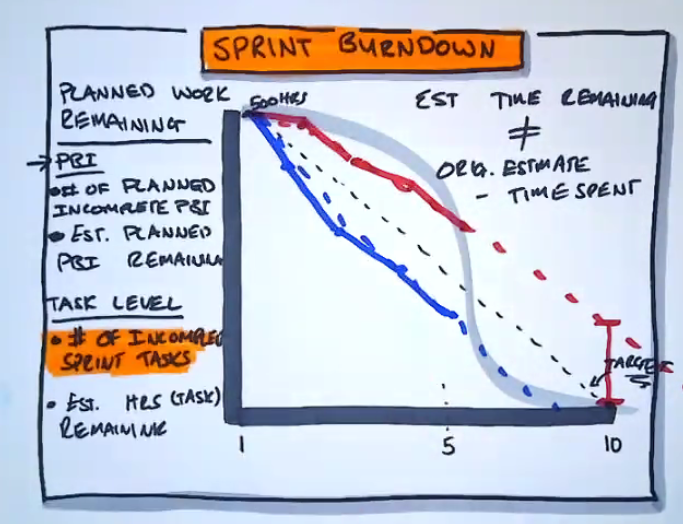 SPRINT BURNDOWN
PLANNED WORK
REMAINING
PBI
# OF PLANNED
INCOMPLETE PBI
EST. PLANNED
PBI REMAININ
TASK LEVEL
# OF INCOMPLE
SPRINT TASKS
EST. HRS (TASK)
REMAINING
500HRS
EST TIME REMAINING
≠
ORIG. ESTIMATE
- TIME SPENT
TARGET
1
5
10